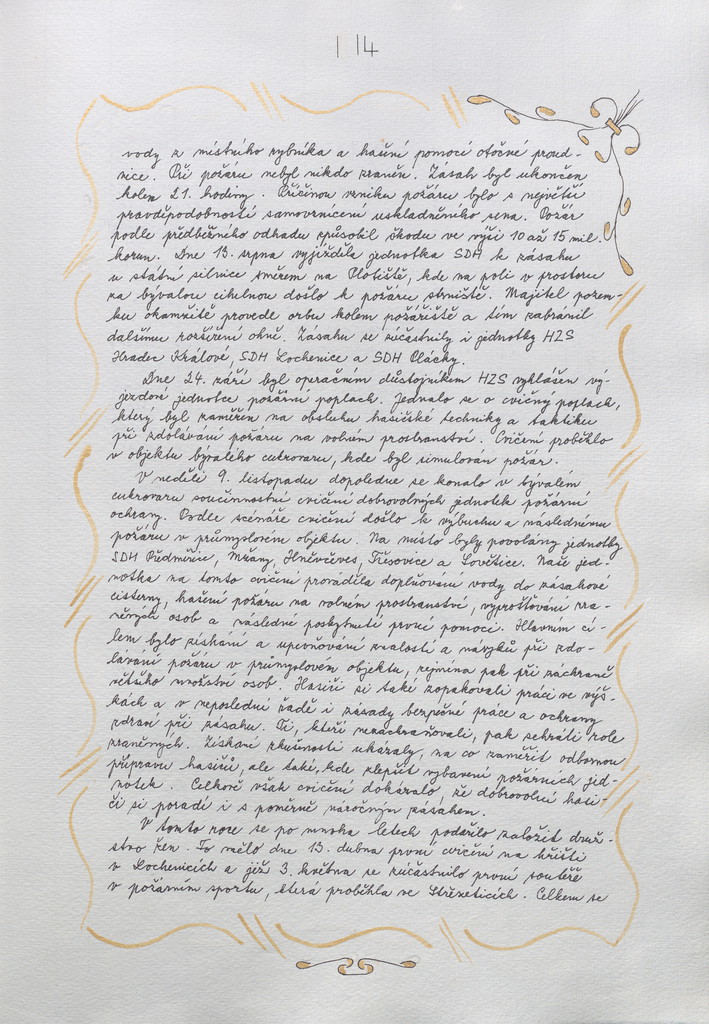 114
vody z místního rybníka a hašení pomocí otočné proud-
nice. Při požáru nebyl nikdo zraněn. Zásah byl ukončen
kolem 21. hodiny. Příčinou vzniku požáru bylo s největší
pravděpodobností samovznícení uskladněného sena. Požár
podle předběžného odhadu způsobil škodu ve výši 10 až 15 mil.
korun. Dne 13. srpna vyjížděla jednotka SDH k zásahu
u státní silnice směrem na Plotiště, kde na poli v prostoru
za bývalou cihelnou došlo k požáru strniště. Majitel pozem-
ku okamžitě provedl orbu kolem požářiště a tím zabránil
dalšímu rozšíření ohně. Zásahu se zúčastnily i jednotky HZS
Hradec Králové, SDH Lochenice a SDH Plácky.
Dne 24. září byl operačním důstojníkem HZS vyhlášen vý-
jezdové jednotce požární poplach. Jednalo se o cvičný poplach,
který byl zaměřen na obsluhu hasičské techniky a taktiku
při zdolávání požáru na volném prostranství. Cvičení proběhlo
v objektu bývalého cukrovaru, kde byl simulován požár.
V neděli 9. listopadu dopoledne se konalo v bývalém
cukrovaru součinnostní cvičení dobrovolných jednotek požární
ochrany. Podle scénáře cvičení došlo k výbuchu a následnému
požáru v průmyslovém objektu. Na místo byly povolány jednotky
SDH Předměřice, Mžany, Hněvčeves, Třesovice a Sovětice. Naše jed-
notka na tomto cvičení prováděla doplňování vody do zásahové
cisterny, hašení požáru na volném prostranství, vyprošťování zra-
něných osob a následné poskytnutí první pomoci. Hlavním cí-
lem bylo získání a upevňování znalostí a návyků při zdo-
lávání požáru v průmyslovém objektu, zejména pak při záchraně
většího množství osob. Hasiči si také zopakovali práci ve výš-
kách a v neposlední řadě i zásady bezpečné práce a ochrany
zdraví při zásahu. Ti, kteří nezachraňovali, pak sehráli role
zraněných. Získané zkušenosti ukázaly, na co zaměřit odbornou
přípravu hasičů, ale také, kde zlepšit vybavení požárních jed-
notek. Celkově však cvičení dokázalo, že dobrovolní hasi-
či si poradí i s poměrně náročným zásahem.
V tomto roce se po mnoha letech podařilo založit druž-
stvo žen. To mělo dne 13. dubna první cvičení na hřišti
v Lochenicích a již 3. května se zúčastnilo první soutěže
v požárním sportu, která proběhla ve Střezeticích. Celkem se